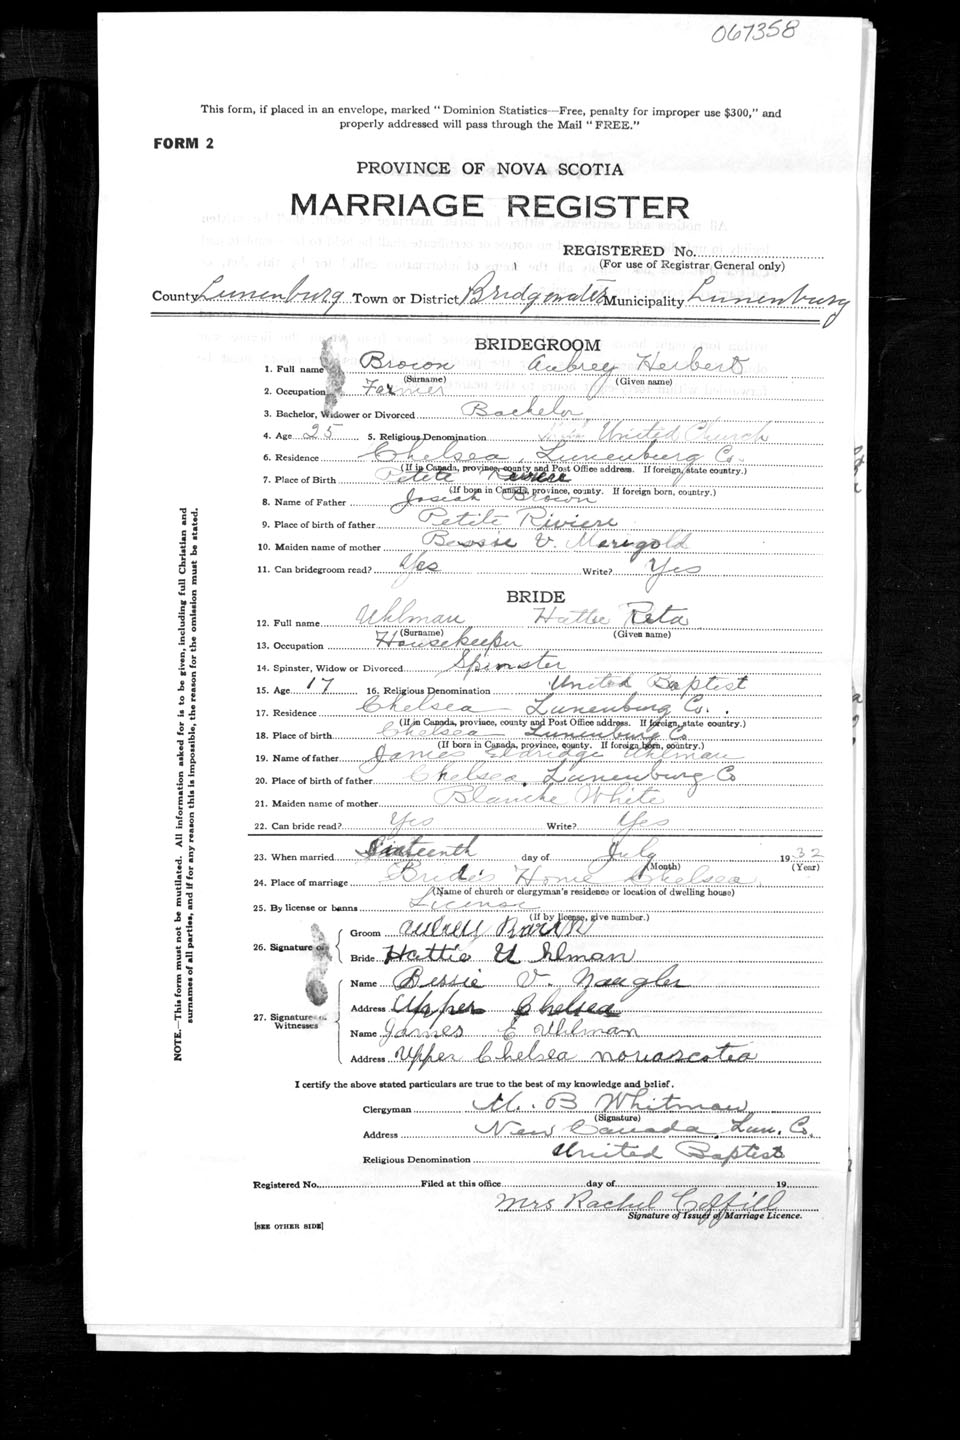 067358
This form, if placed in an envelope, marked "Dominion Statistics—Free, penalty for improper use $300," and
properly addressed will pass through the Mail "FREE."
FORM 2
PROVINCE OF NOVA SCOTIA
MARRIAGE REGISTER
REGISTERED No.
(For use of Registrar General only)
County Lunenburg Town or District Bridgewater Municipality Lunenburg
BRIDEGROOM
1. Full name Brown Aubrey Herbert
(Surname) (Given name)
2. Occupation Farmer
3. Bachelor, Widower or Divorced Bachelor
4. Age 25 5. Religious Denomination United Church
6. Residence Chelsea, Lunenburg Co.
(If in Canada, province, county and Post Office address. If foreign, state country.)
7. Place of Birth Petite Riviere
(If born in Canada, province, county. If foreign born, country.)
8. Name of Father Josiah Brown
9. Place of birth of father Petite Riviere
10. Maiden name of mother Bessie V. Marigold
11. Can bridegroom read? Yes Write? Yes
BRIDE
12. Full name Uhlman Hattie Reta
(Surname) (Given name)
13. Occupation Housekeeper
14. Spinster, Widow or Divorced Spinster
15. Age 17 16. Religious Denomination United Baptist
17. Residence Chelsea Lunenburg Co.
(If in Canada, province, county and Post Office address. If foreign, state country.)
18. Place of birth Chelsea Lunenburg Co
(If born in Canada, province, county. If foreign born, country.)
19. Name of father James Eldridge Uhlman
20. Place of birth of father Chelsea, Lunenburg Co
21. Maiden name of mother Blanche White
22. Can bride read? Yes Write? Yes
23. When married Sixteenth day of July 1932
(Month) (Year)
24. Place of marriage Bride's Home Chelsea
(Name of church or clergyman's residence or location of dwelling house)
25. By license or banns License
(If by license, give number.)
26. Signature of
Groom Aubrey Brown
Bride Hattie Uhlman
27. Signature of Witnesses
Name Bessie V. Naugler
Address Upper Chelsea
Name James E Uhlman
Address Upper Chelsea novascotia
I certify the above stated particulars are true to the best of my knowledge and belief.
Clergyman M. B Whitman
(Signature)
Address New Canada, Lun. Co.
Religious Denomination United Baptist
Registered No. Filed at this office day of 19
Mrs Rachel Coffill
Signature of Issuer of Marriage Licence.
[SEE OTHER SIDE]
NOTE.—This form must not be mutilated. All information asked for is to be given, including full Christian and
surnames of all parties, and if for any reason this is impossible, the reason for the omission must be stated.